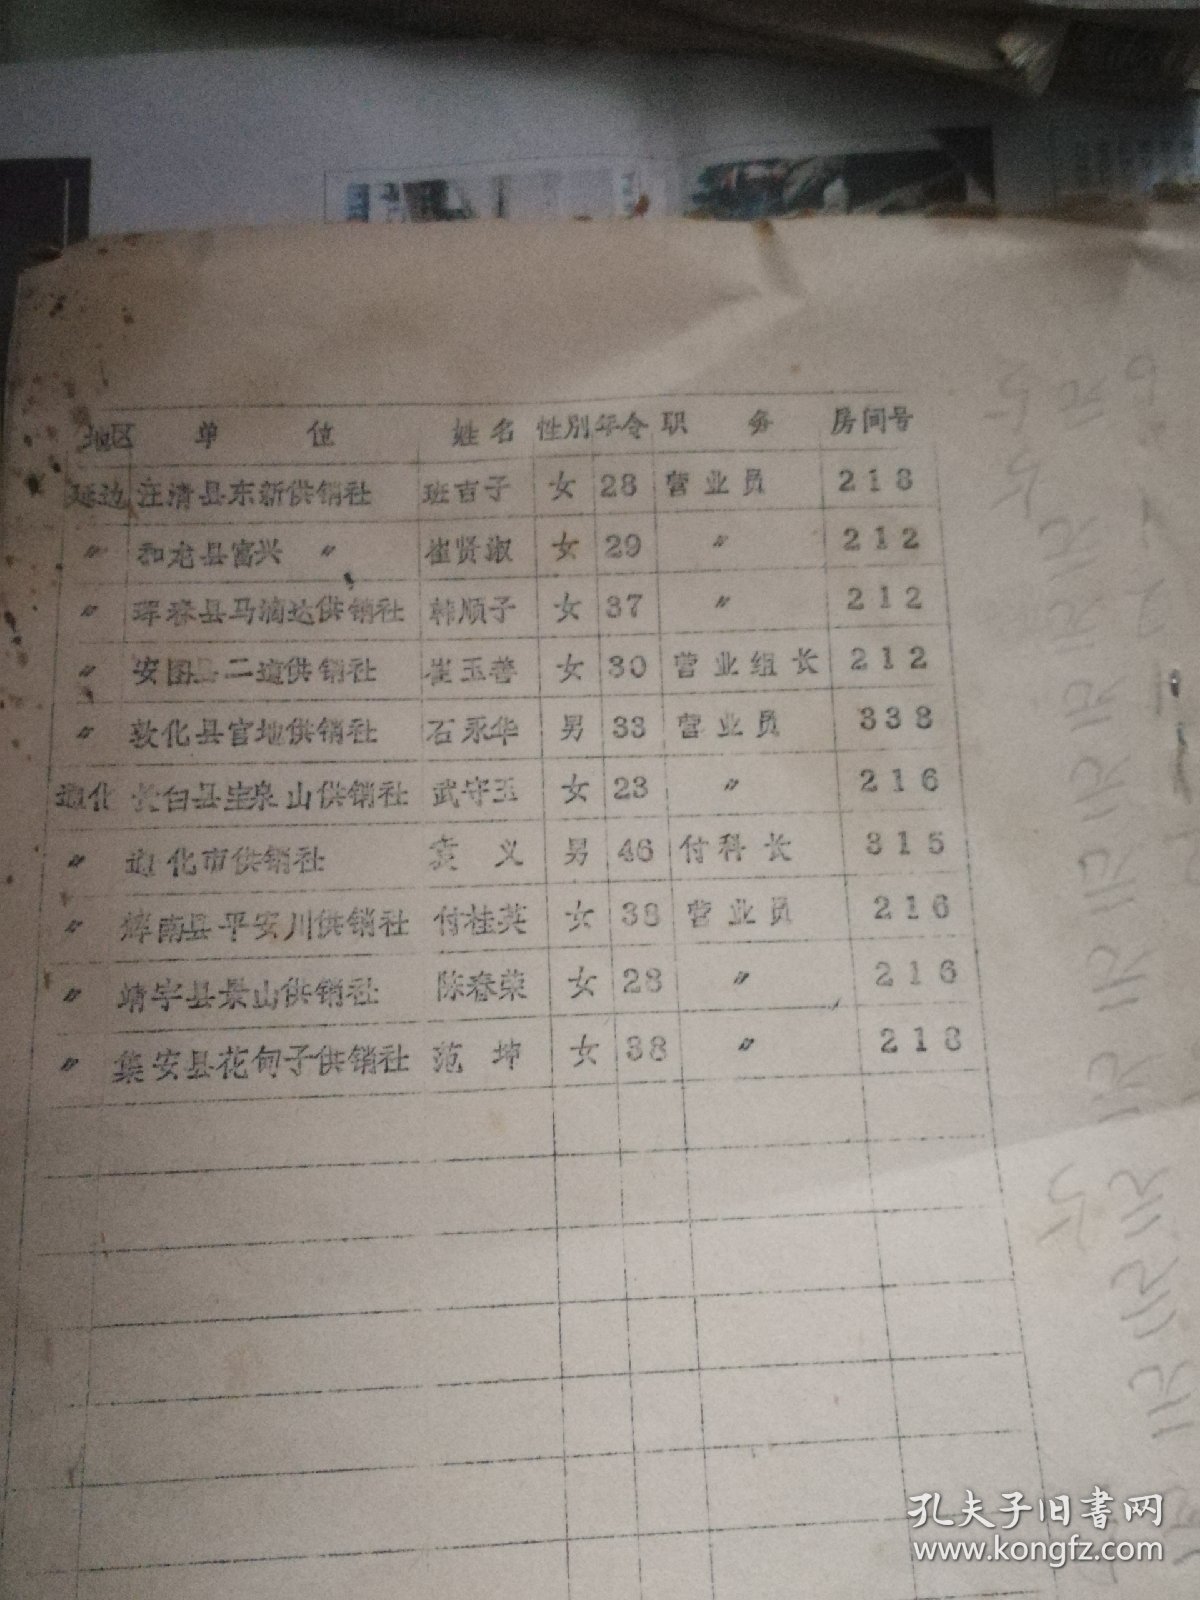 地区 单 位 姓名 性别 年令 职 务 房间号
延边 汪清县东新供销社 班吉子 女 28 营业员 218
〃 和龙县富兴 〃 崔贤淑 女 29 〃 212
〃 珲春县马滴达供销社 韩顺子 女 37 〃 212
〃 安图县二道供销社 崔玉善 女 30 营业组长 212
〃 敦化县官地供销社 石永华 男 33 营业员 338
通化 长白县宝泉山供销社 武守玉 女 23 〃 216
〃 通化市供销社 袁义 男 46 付科长 315
〃 辉南县平安川供销社 付桂英 女 38 营业员 216
〃 靖宇县景山供销社 陈春荣 女 28 〃 216
〃 集安县花甸子供销社 范坤 女 38 〃 218
孔夫子旧书网
www.kongfz.com